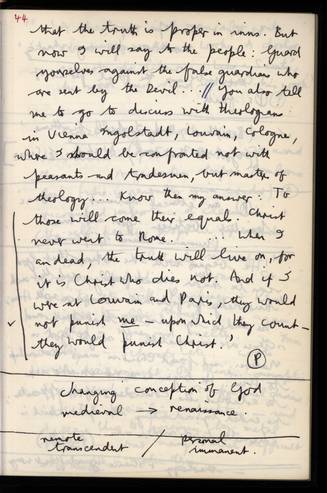 44
that the truth is proper in inns. But
now I will say to the people: Guard
yourselves against the false guardians who
are sent by the Devil... // You also tell
me to go to discuss with theologians
in Vienna Ingolstadt, Louvain, Cologne,
where I should be confronted not with
peasants and tradesmen, but masters of
theology... Know then my answer. To
those will come their equal. Christ
never went to Rome. ..... When I
am dead, the truth will live on, for
it is Christ who dies not. And if I
were at Louvain and Paris, they would
not punish me — upon which they count —
they would punish Christ.'
P
changing conception of God
medieval → renaissance.
remote / personal
transcendent immanent.